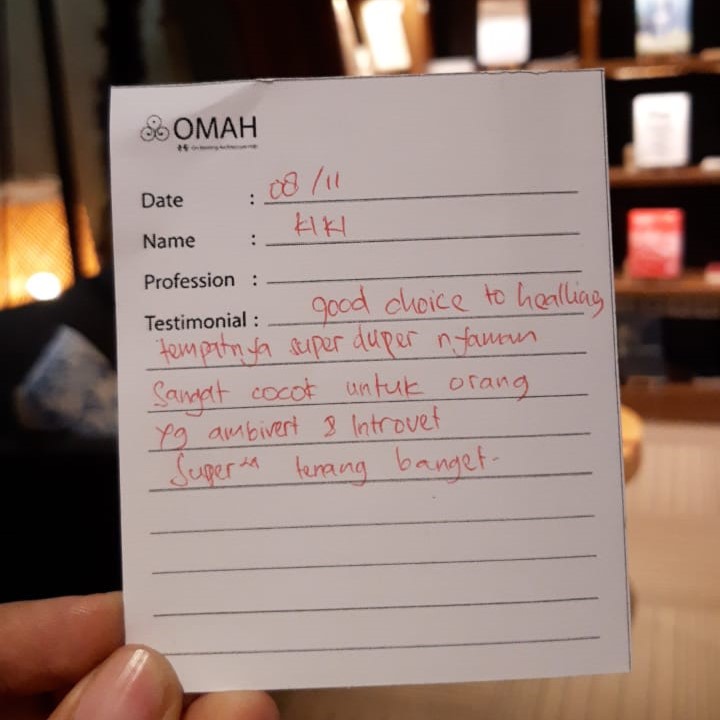 OMAH
Date : 08/11
Name : KIKI
Profession :
Testimonial : good choice to healling
tempatnya super duper nyaman
Sangat cocok untuk orang
yg ambivert & Introvet
Super tenang banget.